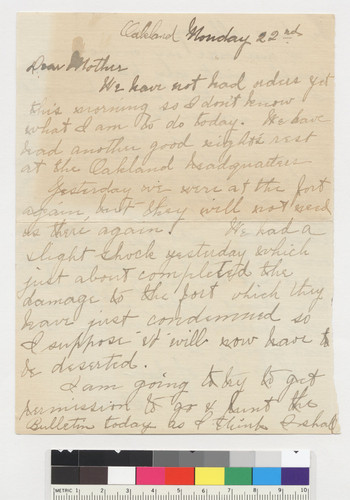 Oakland Monday 22nd
Dear Mother
We have not had orders yet
this morning so I don't know
what I am to do today. We have
had another good night's rest
at the Oakland headquarters
Yesterday we were at the fort
again, but they will not need
us there again. We had a
slight shock yesterday which
just about completed the
damage to the fort which they
have just condemned so
I suppose it will now have to
be deserted.
I am going to try to get
permission to go & hunt the
Bulletin today as I think I shall
METRIC 1 2 3 4 5 6 7 8 9 10